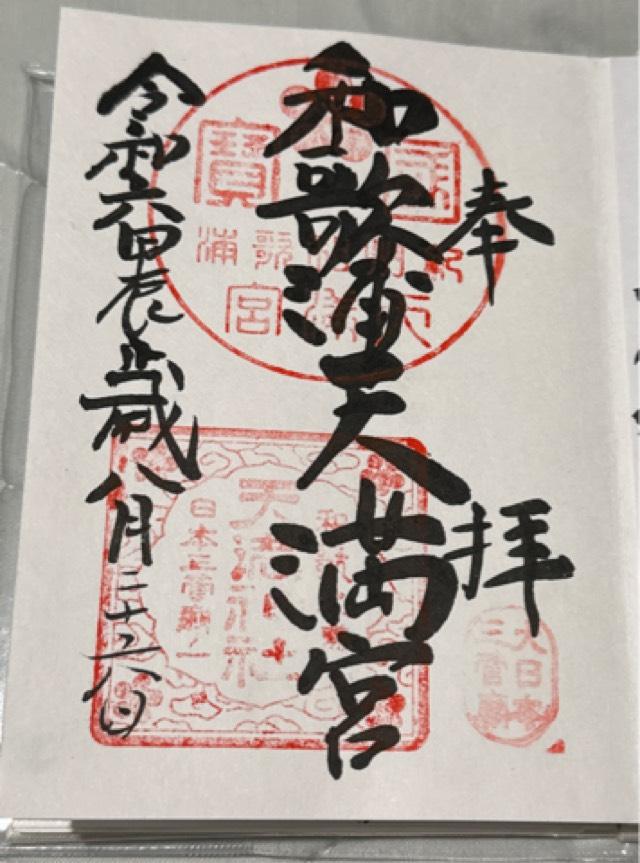 奉拝
和歌浦天満宮
令和六甲辰歳八月二十日
寶
歌
浦
宮
天満神社
日本三菅廟一
大日本
三菅廟